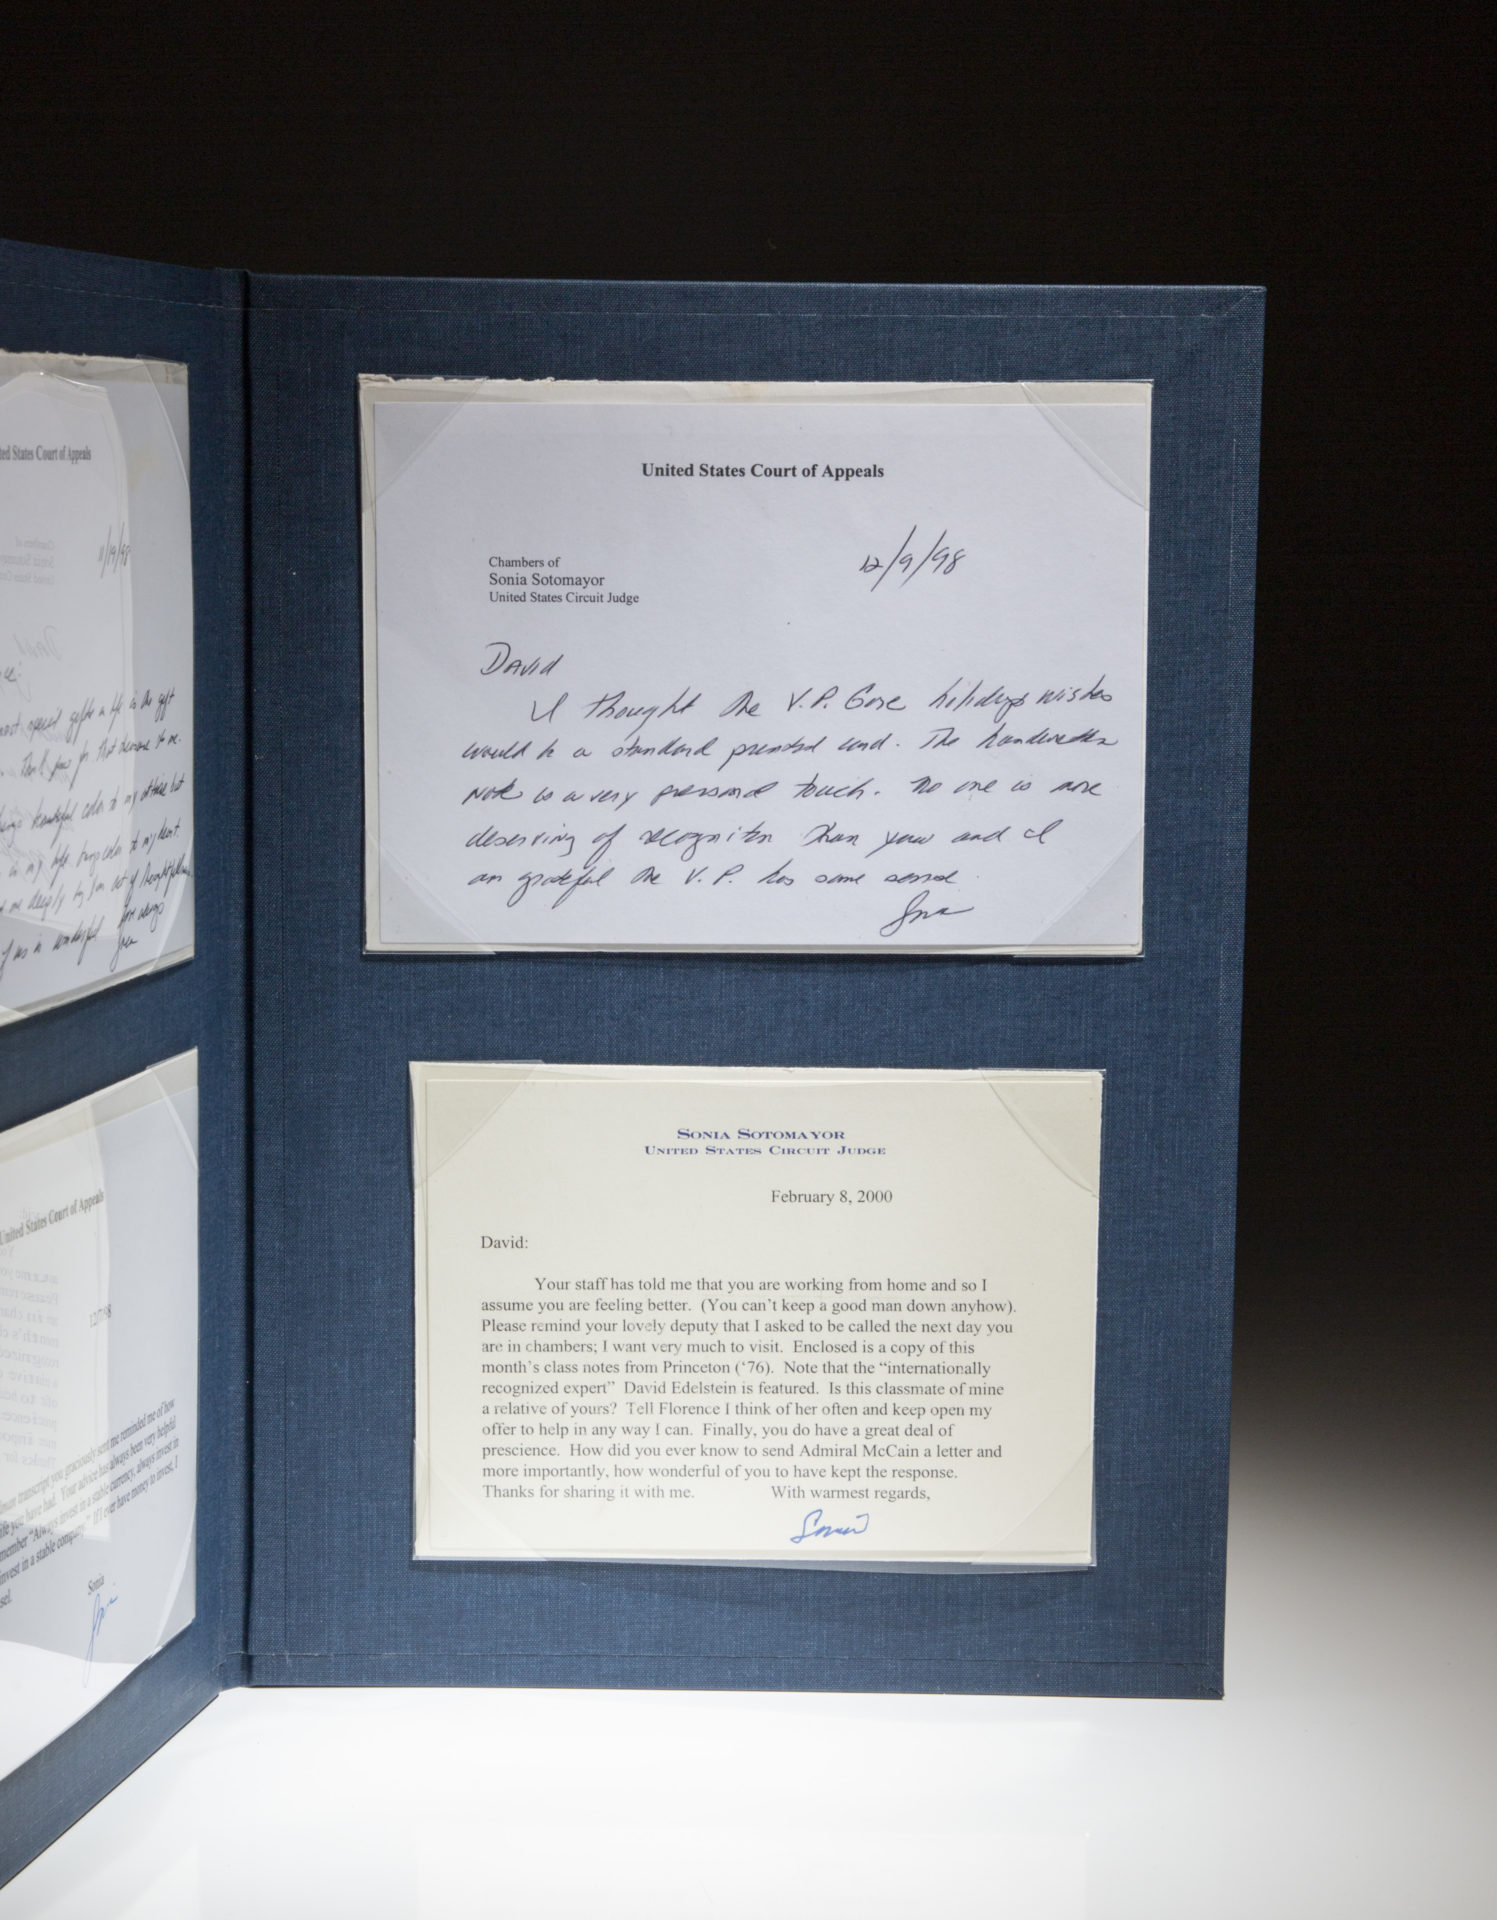 United States Court of Appeals
12/9/98
Chambers of
Sonia Sotomayor
United States Circuit Judge
David
I thought the V.P. Gore holidays wishes
would be a standard printed card. The handwritten
note is a very personal touch. No one is more
deserving of recognition than you and I
am grateful the V.P. has some sense.
Sonia
SONIA SOTOMAYOR
UNITED STATES CIRCUIT JUDGE
February 8, 2000
David:
Your staff has told me that you are working from home and so I
assume you are feeling better. (You can't keep a good man down anyhow).
Please remind your lovely deputy that I asked to be called the next day you
are in chambers; I want very much to visit. Enclosed is a copy of this
month's class notes from Princeton ('76). Note that the "internationally
recognized expert" David Edelstein is featured. Is this classmate of mine
a relative of yours? Tell Florence I think of her often and keep open my
offer to help in any way I can. Finally, you do have a great deal of
prescience. How did you ever know to send Admiral McCain a letter and
more importantly, how wonderful of you to have kept the response.
Thanks for sharing it with me. With warmest regards,
Sonia
States Court of Appeals
11/19/98
United States Court of Appeals
12/7/98
transcript you graciously sent me reminded me of how
life you have had. Your advice has always been very helpful
"Always invest in a stable currency, always invest in
invest in a stable company." If I ever have money to invest, I
Sonia